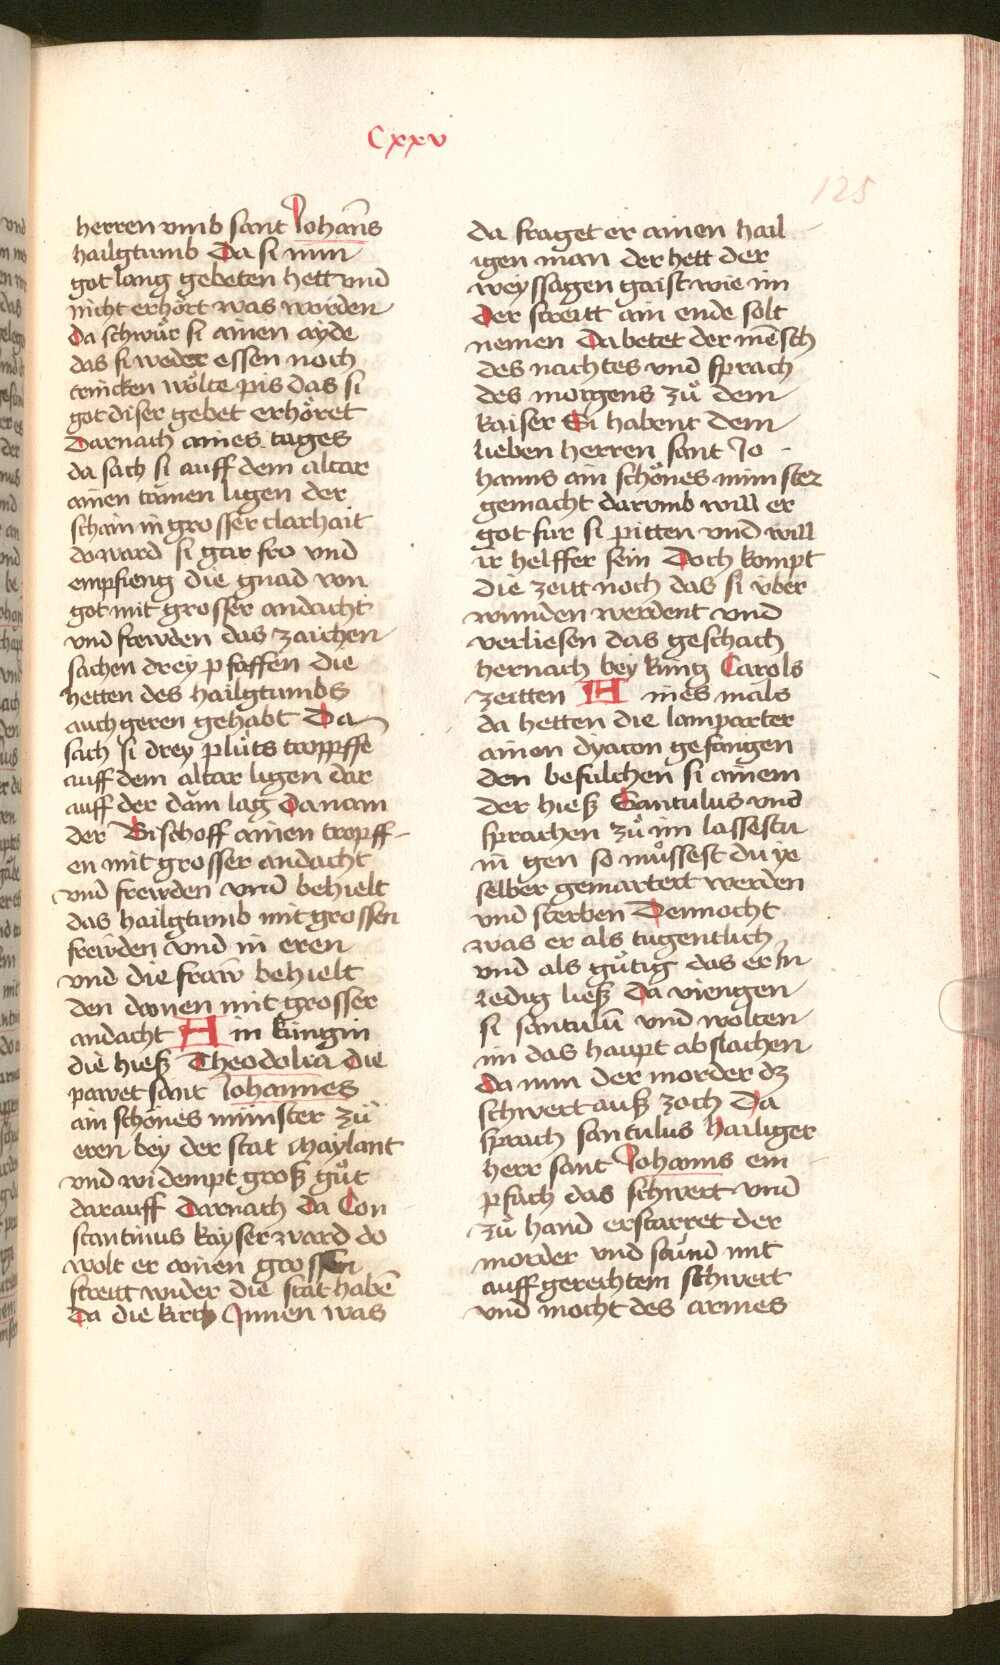 Cxxv
125
herren vmb sant Johan̄s
hailgtumb Da si nun
got lang gebeten hett vnd
nicht erhört was worden
Da schwůr si ainen ayde
das si weder essen noch
trincken wölte pis das si
got diser gebet erhöret
Darnach aines tages
da sach si auff dem altar
ainen tämen ligen der
schain in grosser clarhait
do ward si gar fro vnd
empfieng die gnad von
got mit grosser andacht
vnd frewden das zaichen
sachen drey pfaffen die
hetten des hailgtumbs
auch geren gehabt Da
sach si drey plůts tropffe
auff dem altar ligen dar
auff der däm lag Da nam
der Bischoff ainen tropff-
en mit grosser andacht
vnd frewden vnd behielt
das hailgtumb mit grossen
frewden vnd in eren
vnd die fraw behielt
den domen mit grosser
andacht A in küngin
die hieß Theodolia die
pawet sant Johannes
ain schönes münster zů
eren bey der stat Maylant
vnd widempt groß gůt
darauff Darnach Da Con
stantinus kayser ward do
wolt er ainen grossen
streitt wider die stat habē
Da die kirch Jnnen was
da fraget er ainen hail
igen man der hett der
weyssagen gaist wie im
Der streitt ain ende solt
nemen Da betet der mēsch
des nachtes vnd sprach
des morgens zů dem
kaiser Si habent dem
lieben herren sant Jo
hanns ain schönes münster
gemacht darumb will er
got fur si pitten vnd will
ir helffer sein Doch kompt
die zeitt noch das si über
wunden werdent vnd
verliesen das geschach
hernach bey küng Carols
zeitten A ines mals
da hetten die lamparter
ainen dyacon gefangen
den befulchen si ainem
der hieß Santulus vnd
sprachen zů im lassestu
in gen so můssest du ye
selber gemartert werden
vnd sterben Dennocht
was er als tugentlich
vnd als gůtig das er Jn
ledig ließ Da viengen
si santulū vnd wolten
im das haupt abslachen
Da nun der morder dz
schwert auß zoch Da
sprach santulus hailiger
herr sant Johanns em
pfach das schwert vnd
zů hand erstarret der
morder vnd stůnd mit
auffgerechtem schwert
vnd mocht des armes